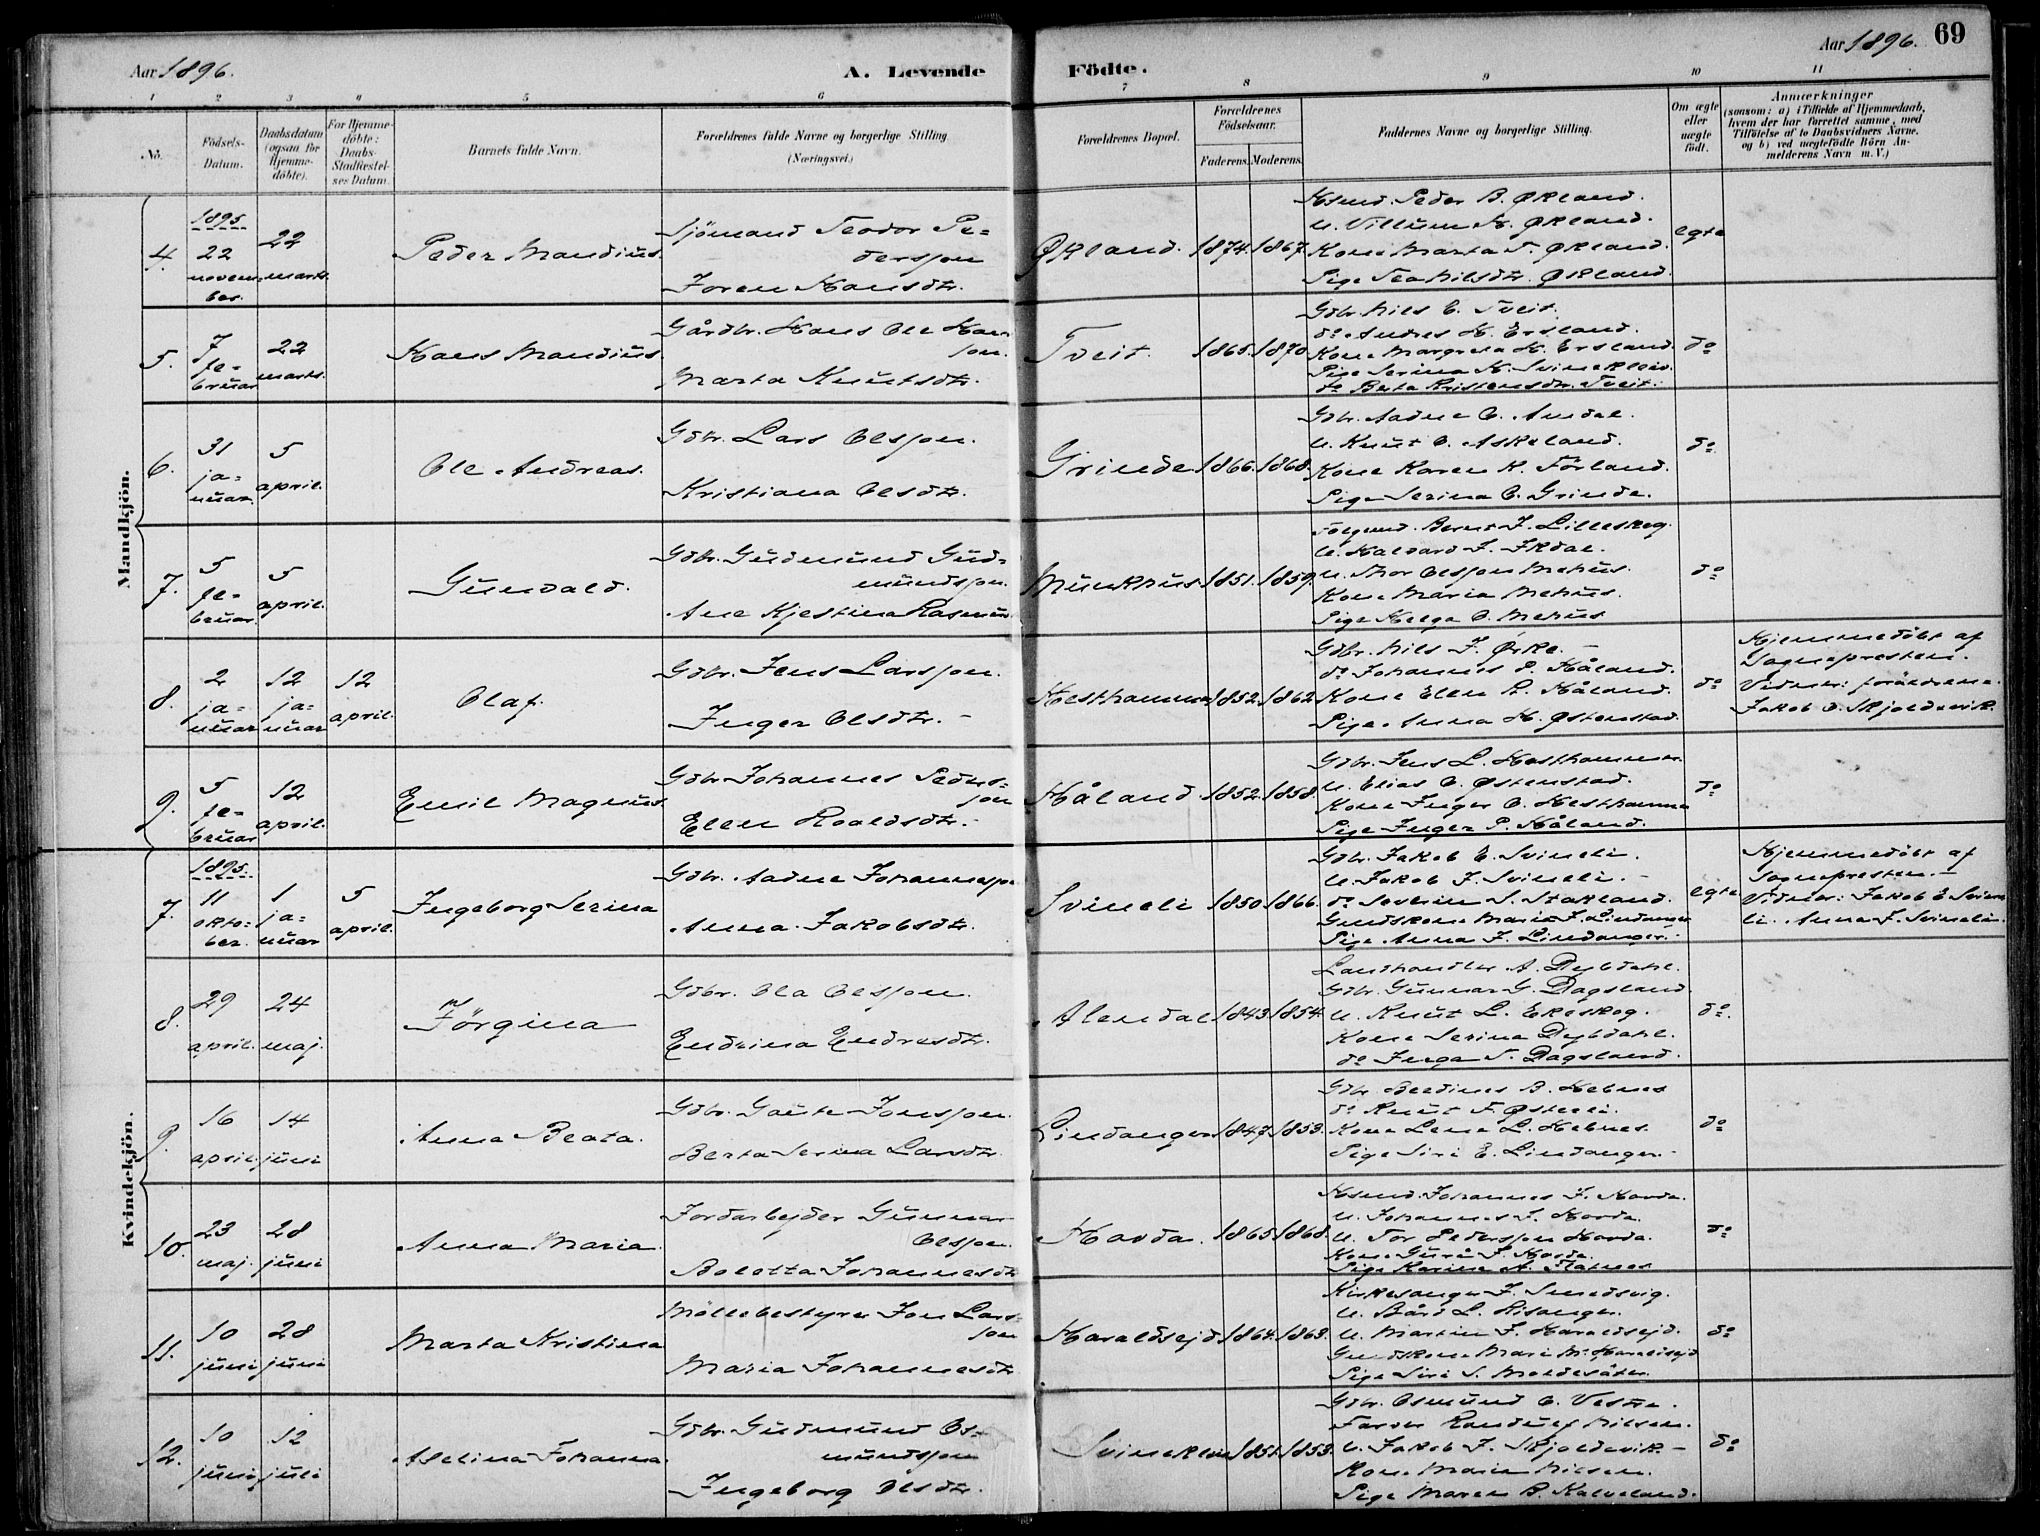 Aar 1896.
A. Levende
Födte.
Aar 1896.
69
1 2 3 4 5 6 7 8 9 10 11
No.
Födsels-Datum.
Daabsdatum (ogsaa for Hjemme-döbte).
For Hjemme-döbte: Daabs-Stadfæstel-ses Datum.
Barnets fulde Navn.
Forældrenes fulde Navne og borgerlige Stilling
(Næringsvei.)
Forældrenes Bopæl.
Forældrenes Födselsaar.
Faderens. Moderens.
Faddernes Navne og borgerlige Stilling.
Om ægte eller uægte födt.
Anmærkninger
(saasom: a) i Tilfælde af Hjemmedaab,
hvem der har forrettet samme, med
Tilföielse af to Daabsvidners Navne.
og b) ved uægtefödte Börn An-
melderens Navn m. V.)
Mandkjön.
4.
1895
22 novem-ber.
22 marts.
Peder Mandius.
Sjömand Teodor Pe-
dersson
Joren Hansdtr.
Økland.
1874. 1867.
Husmd. Peder B. Økland.
U. Villum H. Økland.
Kone Marta T. Økland.
Pige Tea Nilsdtr. Økland.
egte
5.
7 fe-bruar
22 marts.
Hans Mandius.
Gårdbr. Hans Ole Han-
son.
Marta Knutsdtr.
Tveit.
1865. 1870
Gdbr. Nils E. Tveit.
do Andres H. Ersland.
Kone Margreta H. Ersland.
Pige Serina H. Svinekleiv.
do Berta Kristensdtr. Tveit.
do
6.
31 ja-nuar
5 april.
Ole Andreas.
Gdbr. Lars Olsson.
Kristiana Olsdtr.
Grinde
1866. 1868.
Gdbr. Aadne O. Amdal.
U. Knut O. Askeland.
Kone Karen K. Förland.
Pige Serina O. Grinde.
do
7.
5 fe-bruar.
5 april.
Gunvald.
Gdbr. Gudmund Gud-
mundsson.
Ane Kjestina Rasmusd.
Munkhus
1851. 1859.
Bernt J. Lilleskog.
U. Halvard J. Ikdal.
U. Thor Olsson Mehus.
Kone Maria Mehus.
Pige Helga O. Mehus
do
8.
2 ja-nuar
12 ja-nuar
12 april.
Olaf.
Gdbr. Jens Larsson.
Inger Olsdtr.
Hesthammer
1852. 1862
Gdbr. Nils J. Örke.
do Johannes P. Håland.
Kone Ellen R. Håland.
Pige Anna H. Østenstad.
do
Hjemmedöbt af
Sognepresten.
Vidner: foräldrene.
Jakob J. Skjoldevik.
9.
5 fe-bruar
12 april.
Emil Magnus
Gdbr Johannes Peders-
son
Ellen Roaldsdtr.
Håland
1852. 1858.
Gdbr. Jens L. Hesthammer.
U. Elias O. Østenstad.
Kone Inger O. Hesthammer
Pige Inger P. Håland.
do
Kvindekjön.
7.
1895.
11 okto-ber
1 ja-nuar
5 april.
Ingeborg Serina
Gdbr. Aadne Johannesson
Anna Jakobsdtr.
Svineli
1850. 1866.
Gdbr. Jakob E. Svineli.
U. Jakob J. Svineli.
do Severin S. Stakland.
Gmdskone Maria J. Lindanger
Pige Anna J. Lindanger.
egte
Hjemmedöbt af
Sognepresten.
Vidner: Jakob E Svine-
li. Anna J. Svineli.
8.
29 april.
24 maj.
Jörgina
Gdbr. Ola Olsson.
Endrina Endresdtr.
Alendal
1843. 1854.
Landhandler A. Dybdahl.
Gdbr. Gunnar G. Dagsland.
U. Knut L. Ekeskog.
Kone Serina Dybdahl.
do Inga T. Dagsland.
do.
9.
16 april.
14 juni
Anna Beata.
Gdbr. Gaute Jonsson.
Berta Serina Larsdtr.
Lindanger
1847. 1853.
Gdbr. Berdines B. Hebnes
do Knut F. Österli.
Kone Lena L. Hebnes.
Pige Siri E. Lindanger.
do
10.
23 maj.
28 juni
Anna Maria.
Jordarbejder Gunnar
Olsson.
Boletta Johannesdtr
Hovda.
1865. 1868.
Husmd. Johannes J. Hovda.
U. Johannes J. Hovda.
U. Tor Pedersson Hovda.
Kone Guri J. Hovda.
Pige Karina A. Flatnes
do
11.
10 juni
28 juni
Marta Kristina
Möllebestyrer Jon Lars-
son
Maria Johannesdtr
Haraldsejd
1864. 1863.
Kirkesanger J. Smedsvig.
U. Bård L. Risanger.
U. Martin J. Haraldsejd.
Gmdskone Mari M. Haraldsejd
Pige Siri S. Moldesäter.
do
12.
10 juni
12 juli
Alelina Johanna.
Gdbr. Gudmund Os-
mundsson
Ingeborg Olsdtr.
Svinekleiv
1851. 1853.
Gdbr. Osmund O. Vestre.
Farver Randulf Nilsen.
U. Jakob J. Skjoldevik.
Kone Maria Nilsen.
Pige Maren B. Kalveland.
do